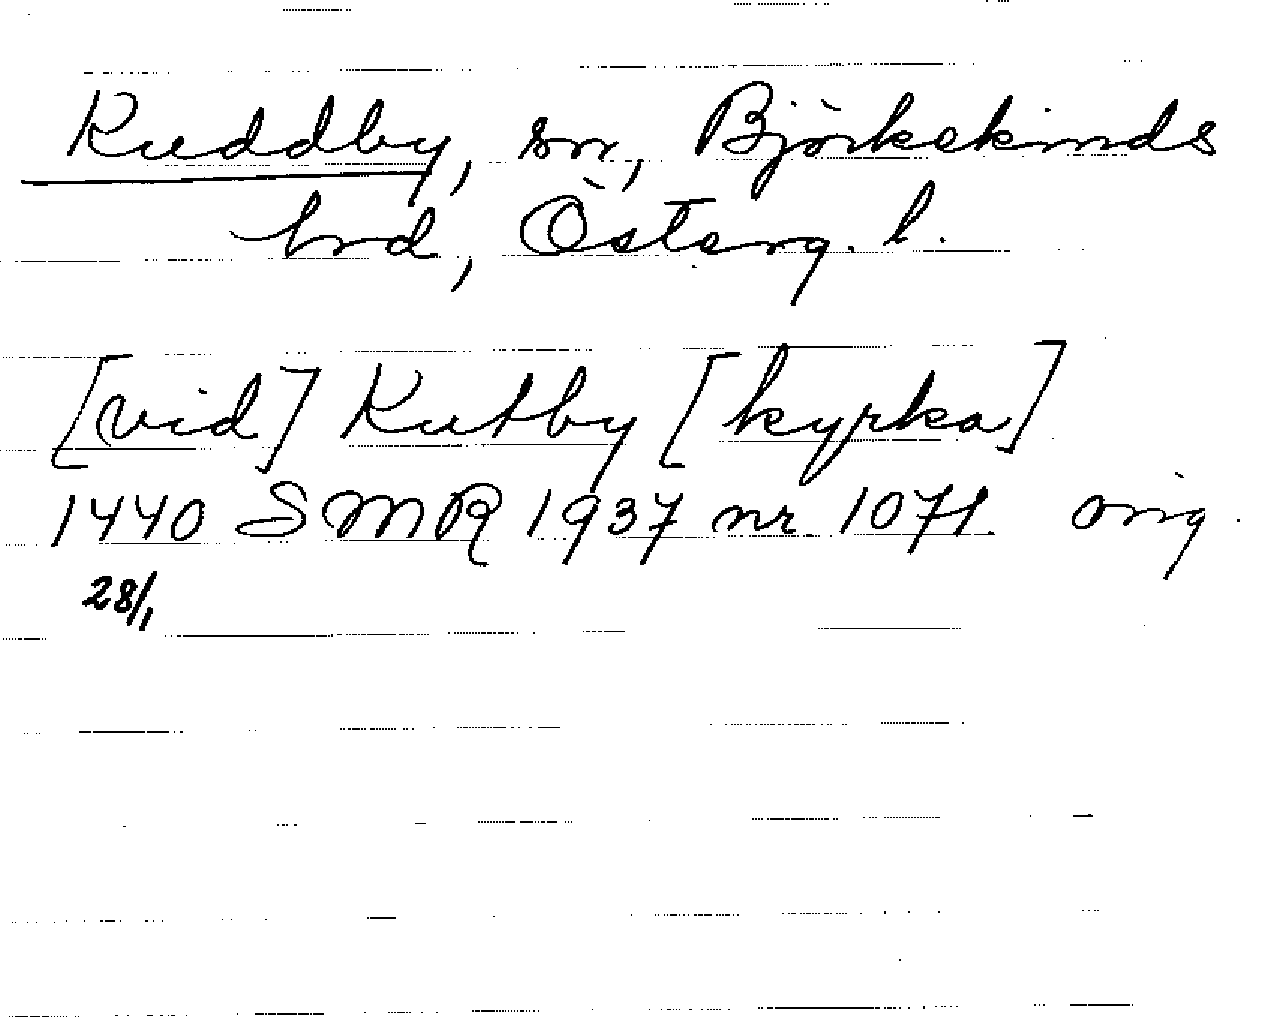 Kuddby, sn, Björkekinds
hrd, Österg. l.
[vid] Kutby [kyrka]
1440 SMR 1937 nr 1071 orig.
28/1